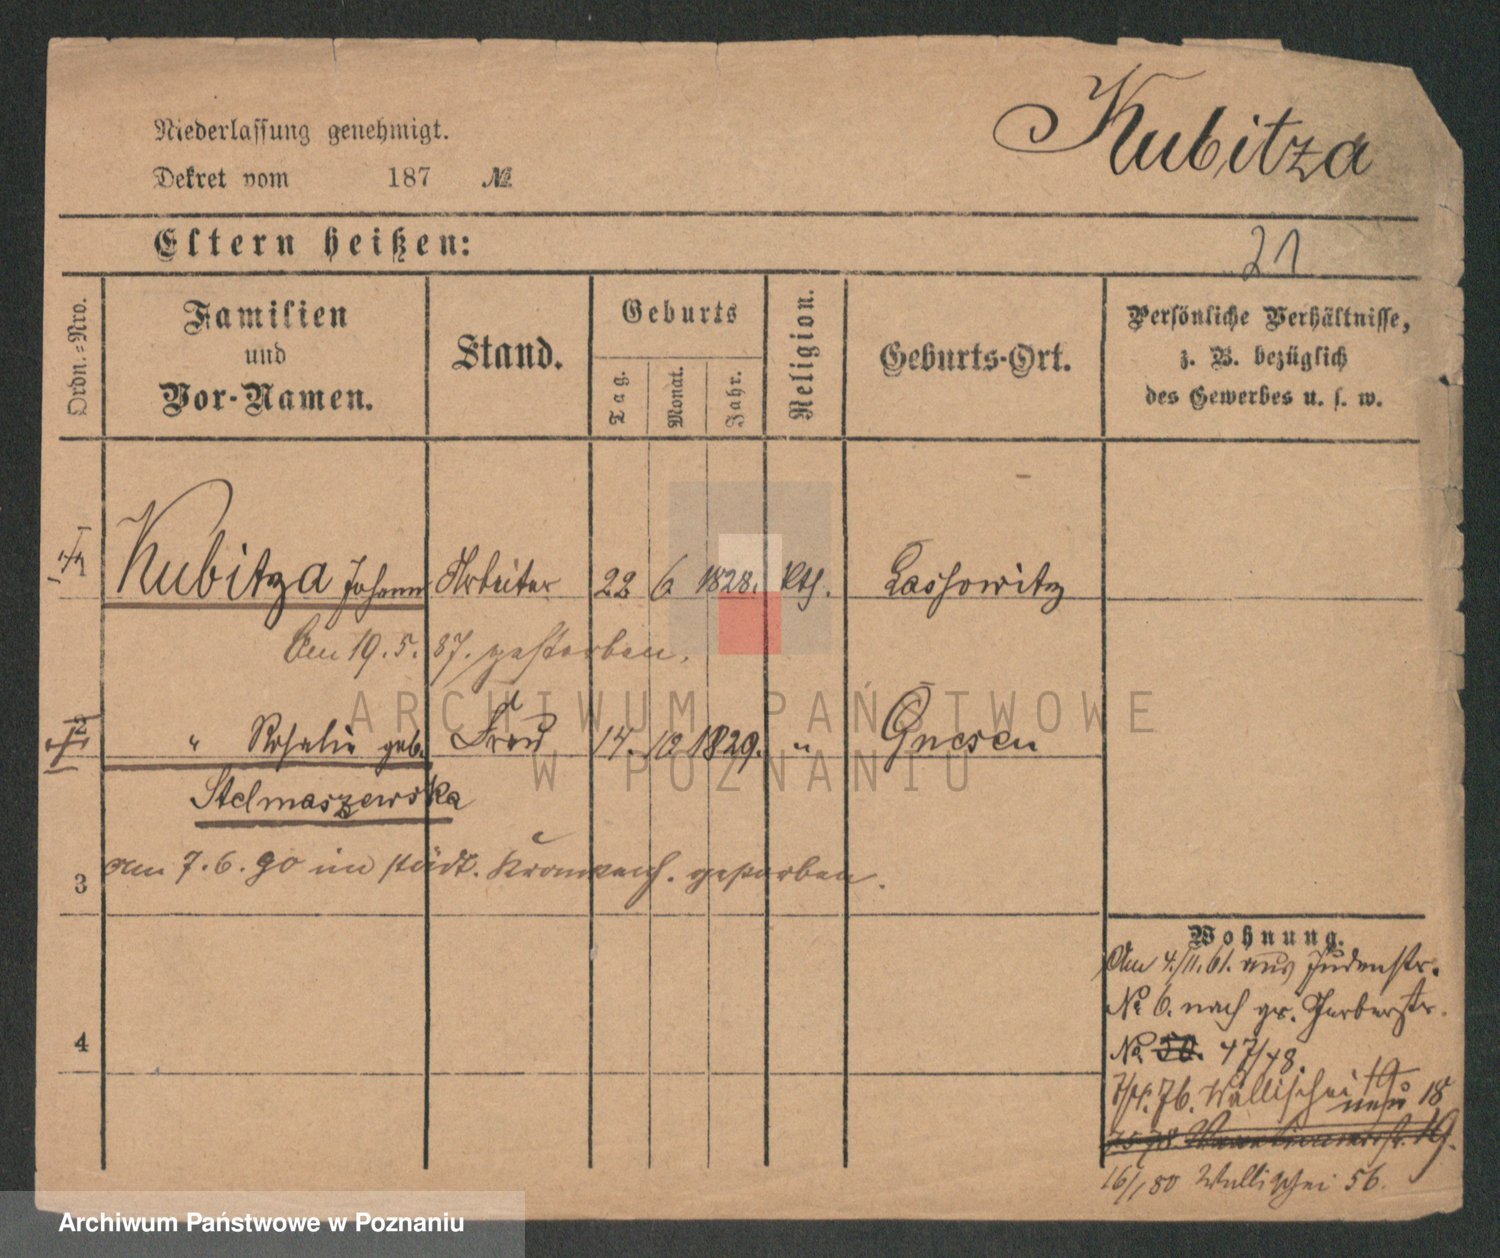 Kubitza
Niederlassung genehmigt.
Dekret vom 187 №
Eltern heißen:
21
Ordn.-Nro.
Familien
und
Vor-Namen.
Stand.
Geburts
Tag.
Monat.
Jahr.
Religion.
Geburts-Ort.
Persönliche Verhältnisse,
z. B. bezüglich
des Gewerbes u. s. w.
1 Kubitza Johann Arbeiter 22 6 1828. kth. Lassowitz
Am 19. 5. 87. gestorben.
2 " Rosalie geb. Frau 14. 10 1829. " Gnesen
Stelmaszewska
3 am 7. 6. 90 im städt. Krankenh. gestorben.
4
Wohnung.
Am 4./11. 61. aus Judenstr.
№ 6. nach gr. Gerberstr.
№ 50. 47/48.
76. Wallischei 19
neu 18
19.
16/1 80 Wallischei 56.
ARCHIWUM PAŃSTWOWE
W POZNANIU
Archiwum Państwowe w Poznaniu